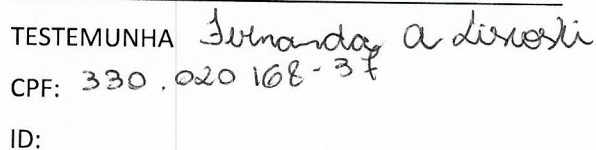 TESTEMUNHA Fernanda A Liscoski
CPF: 330.020 168-37
ID: